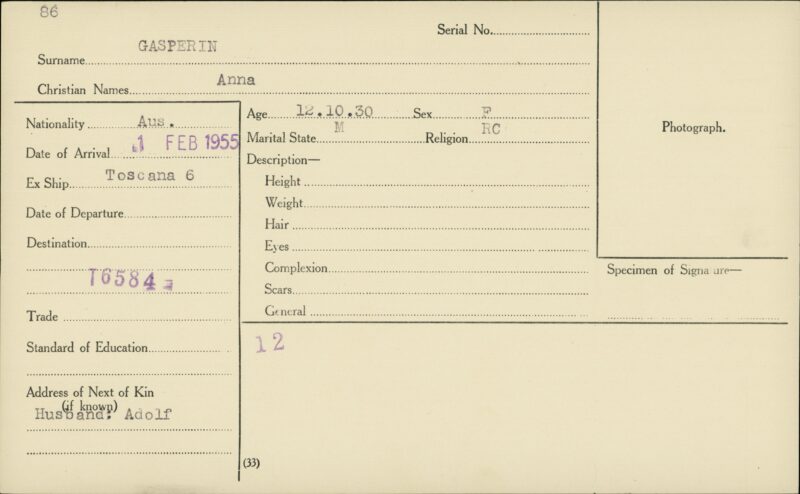 86
Serial No.
Surname GASPERIN
Christian Names Anna
Nationality Aus.
Date of Arrival 1 FEB 1955
Ex Ship Toscana 6
Date of Departure
Destination
T6584
Trade
Standard of Education
Address of Next of Kin
(if known)
Husband: Adolf
Age 12.10.30 Sex F
Marital State M Religion RC
Description—
Height
Weight
Hair
Eyes
Complexion
Scars
General
12
(33)
Photograph.
Specimen of Signa ure—